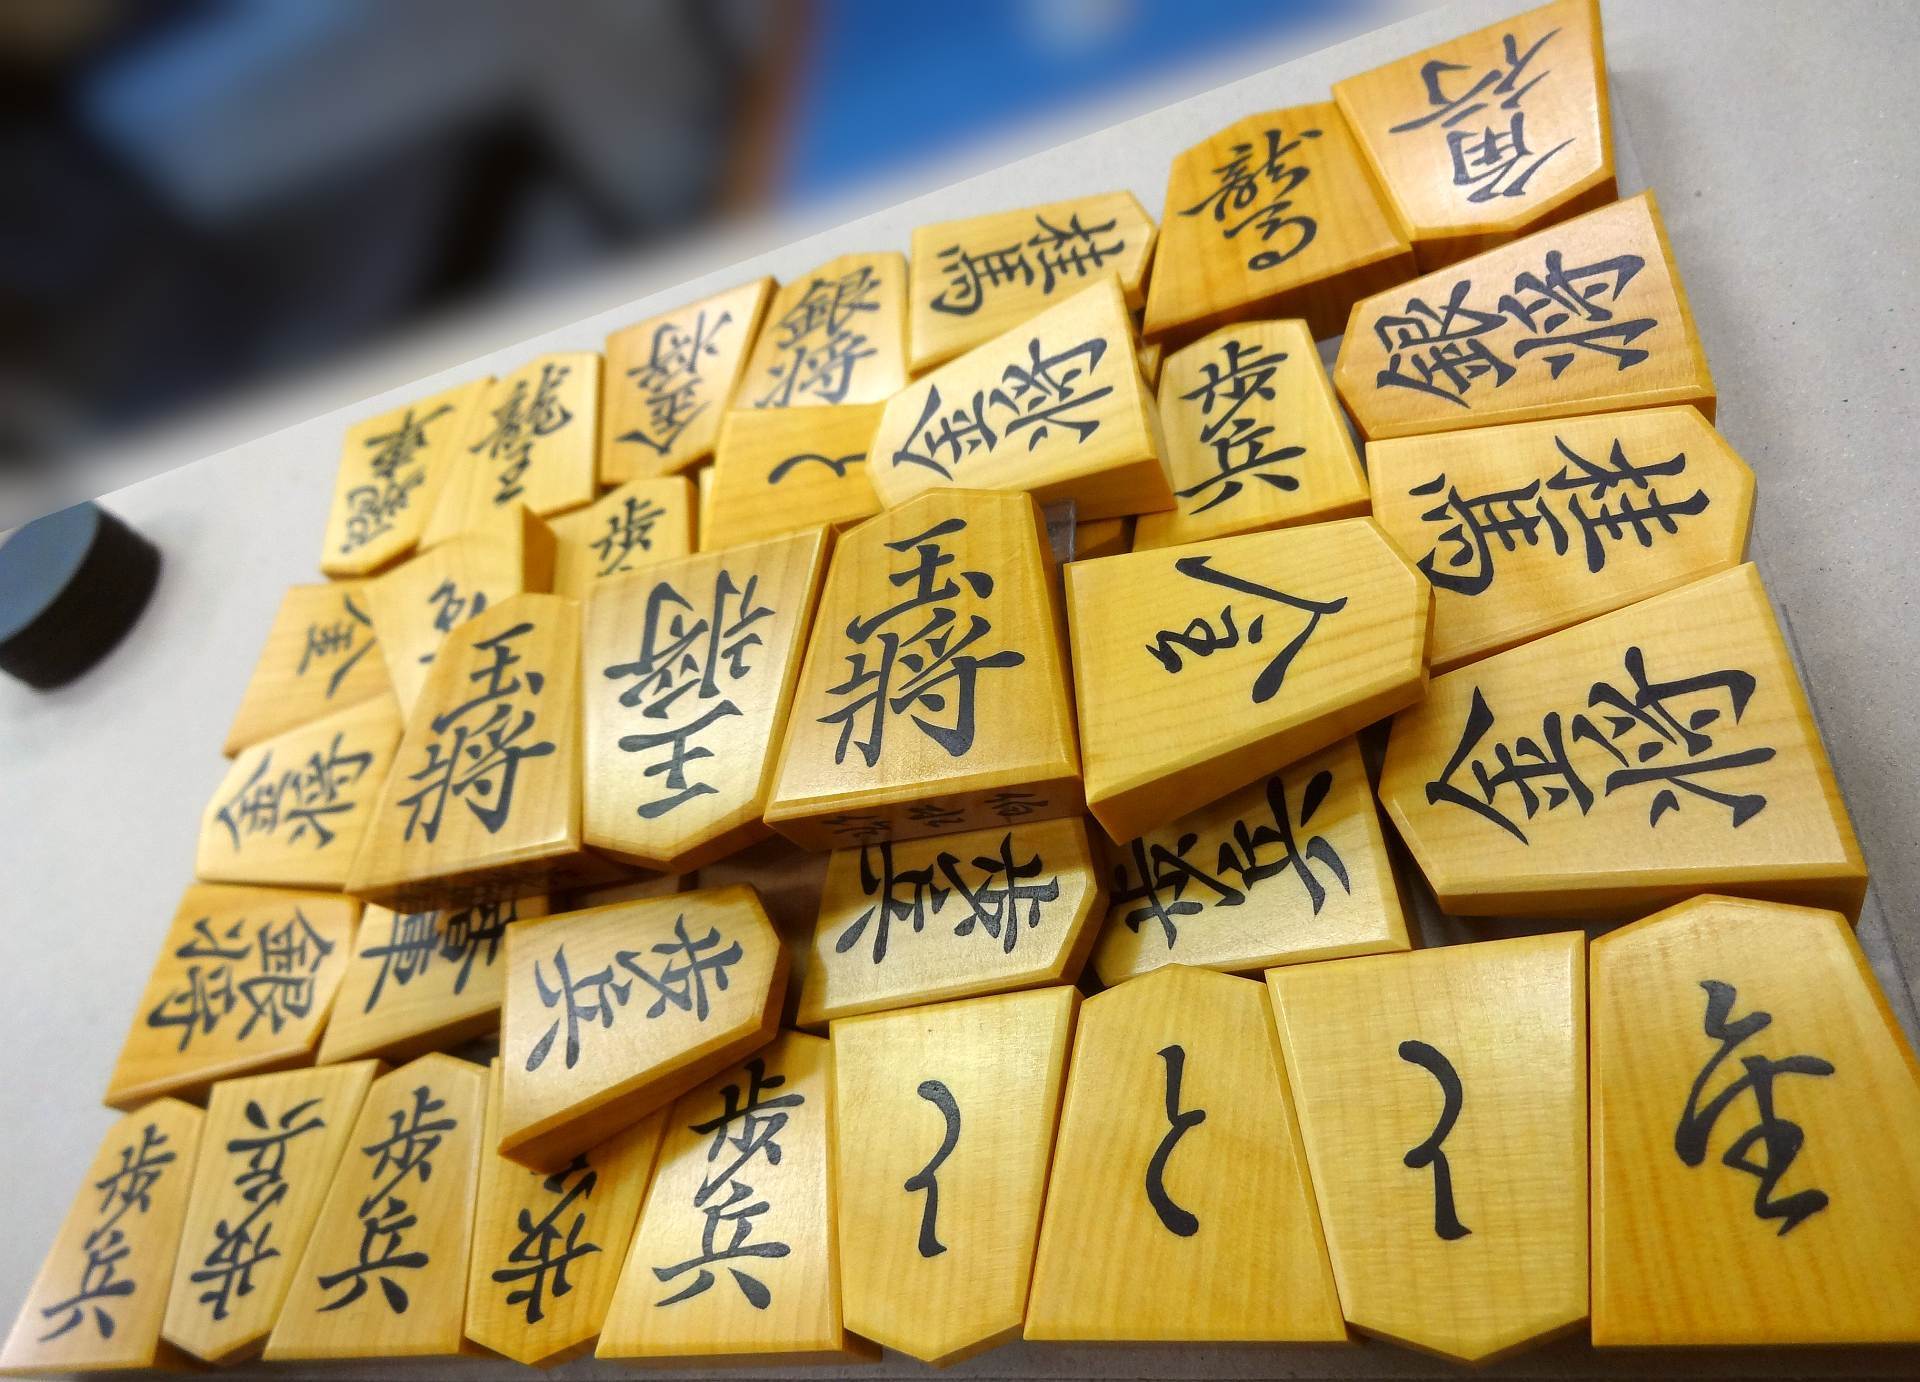 香車
龍馬
桂馬
銀将
金将
龍王
飛車
銀将
金将
歩兵
と
歩
桂馬
玉将
王将
玉将
金
金将
金将
歩兵
歩兵
歩兵
銀将
香車
歩兵
歩兵
歩兵
歩
歩兵
と
と
と